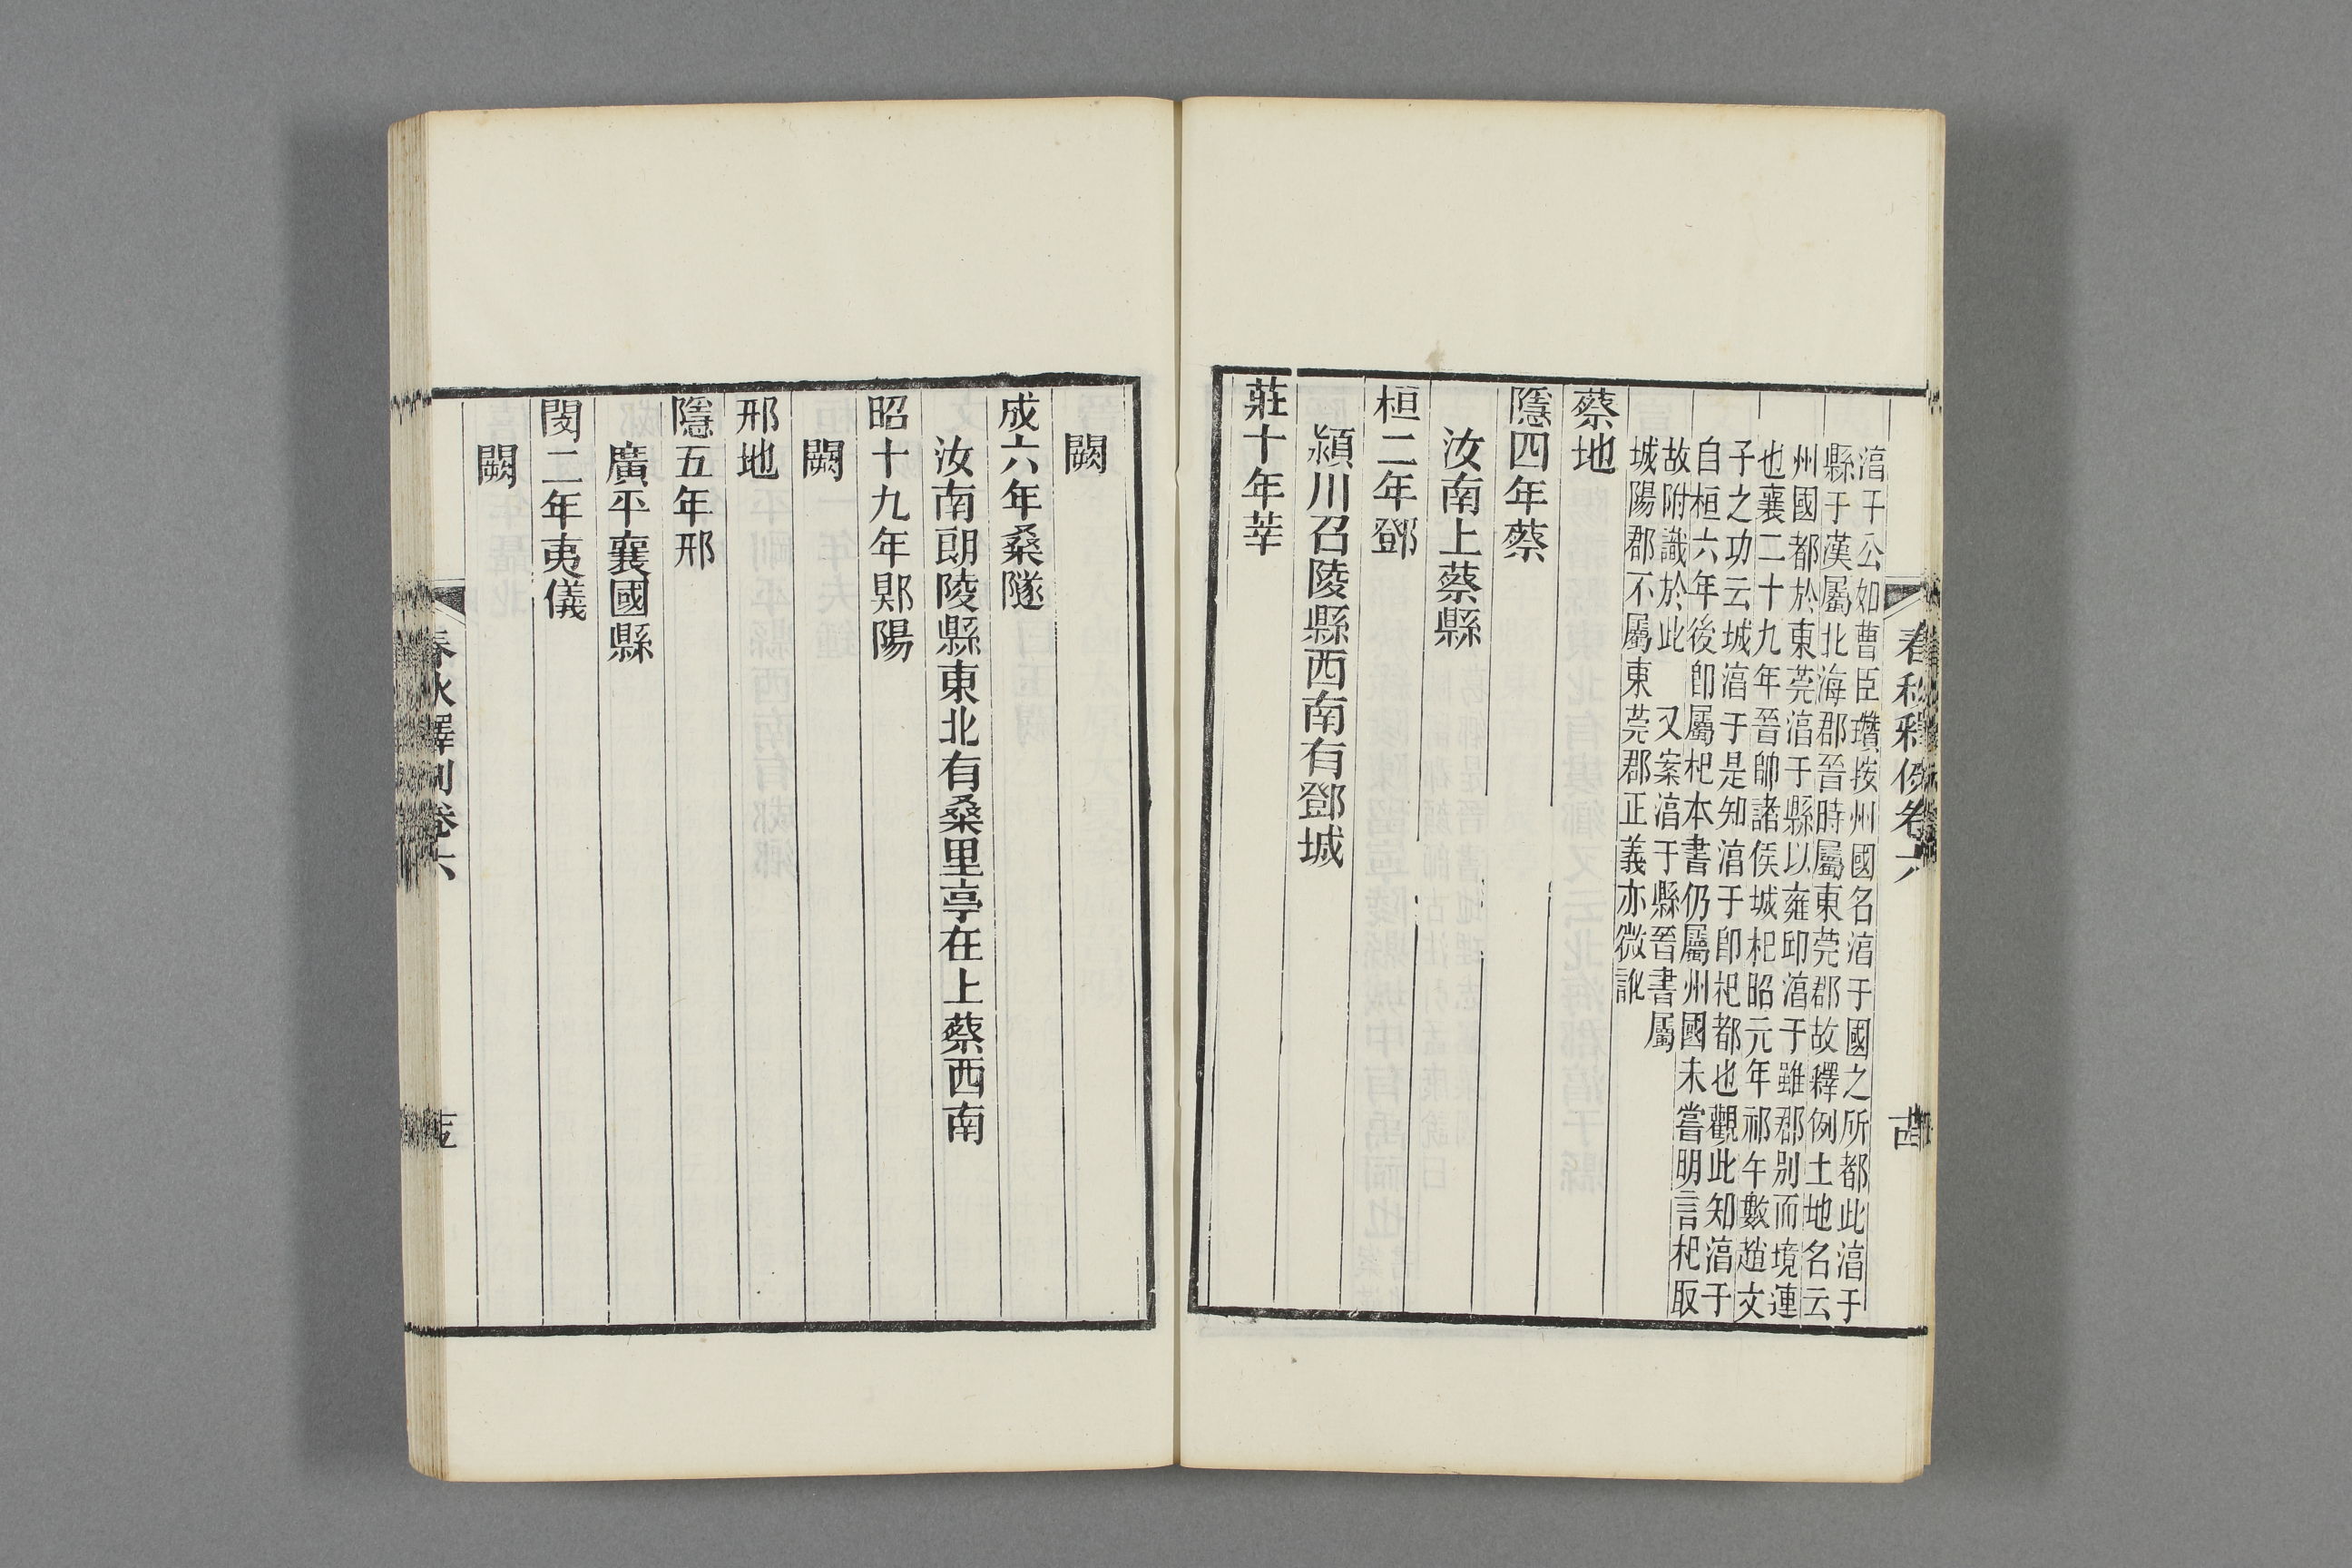 淯于公如曹臣瓚按州國名淯于國之所都此淯于
縣于漢屬北海郡晉時屬東莞郡故釋例土地名云
州國都於東莞淯于縣以雍邱淯于雖郡別而境連
也襄二十九年晉帥諸侯城杞昭元年祁午數趙文
子之功云城淯于是知淯于卽杞都也觀此知淯于
自桓六年後卽屬杞本書仍屬州國未嘗明言杞取
故附識於此　又案淯于縣晉書屬
城陽郡不屬東莞郡正義亦微訛
蔡地
隱四年蔡
汝南上蔡縣
桓二年鄧
潁川召陵縣西南有鄧城
莊十年莘
闕
成六年桑隧
汝南朗陵縣東北有桑里亭在上蔡西南
昭十九年郹陽
闕
邢地
隱五年邢
廣平襄國縣
閔二年夷儀
闕
春秋釋例卷六